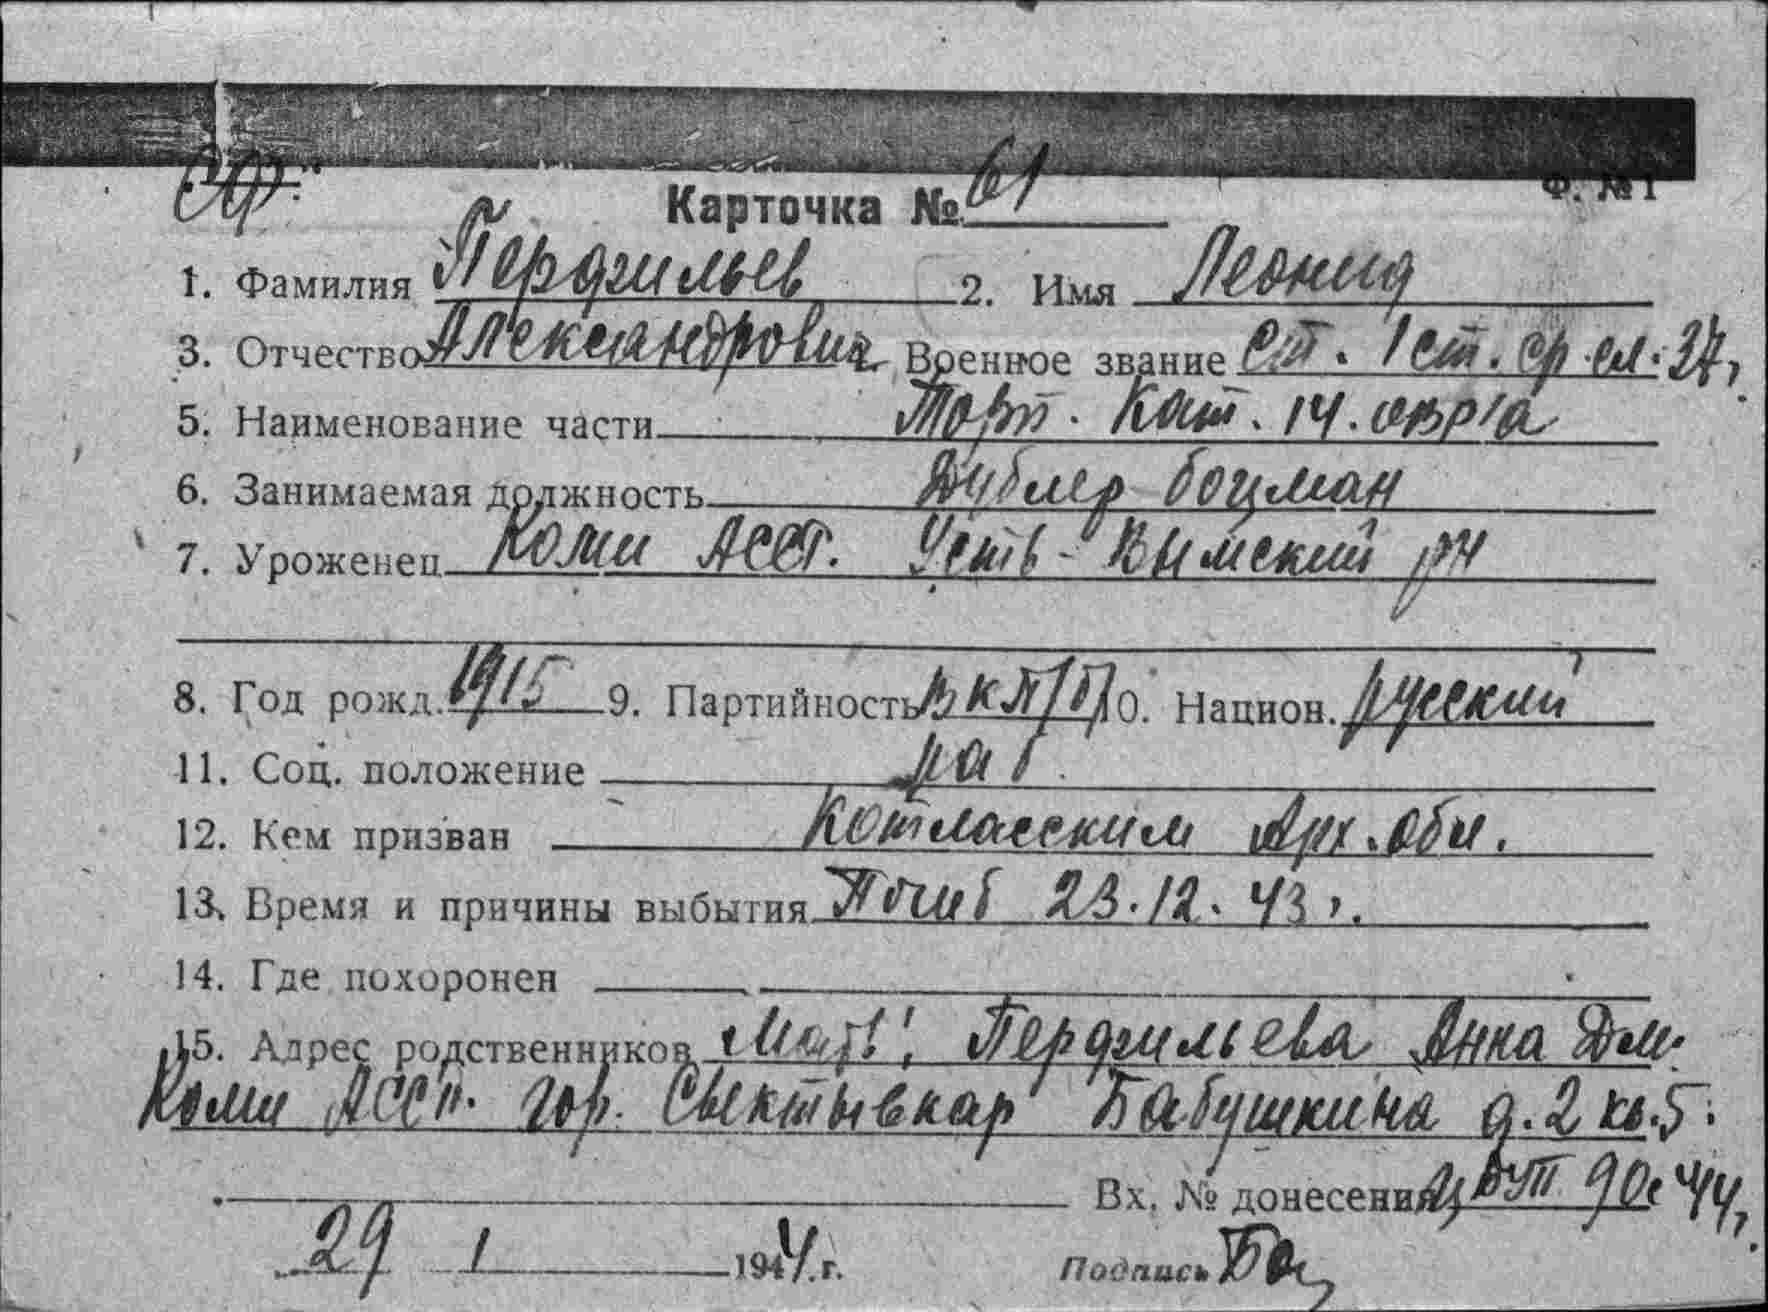 СФ.
Ф. № 1
Карточка № 61
1. Фамилия Перфильев 2. Имя Леонид
3. Отчество Александрович Военное звание ст. 1 ст. ср. сл. 37 г.
5. Наименование части Торп. Кат. 14. овр'а
6. Занимаемая должность Дублер боцман
7. Уроженец Коми АССР. Усть-Вымский рн
8. Год рожд. 1915 9. Партийность ВКП/б/ 10. Национ. русский
11. Соц. положение раб.
12. Кем призван Котласским Арх. обл.
13. Время и причины выбытия Погиб 23.12.43 г.
14. Где похоронен
15. Адрес родственников Мать: Перфильева Анна Дм.
Коми АССР. гор. Сыктывкар Бабушкина д. 2 кв. 5.
Вх. № донесения 90с 44 г.
29 1 1944 г. Подпись